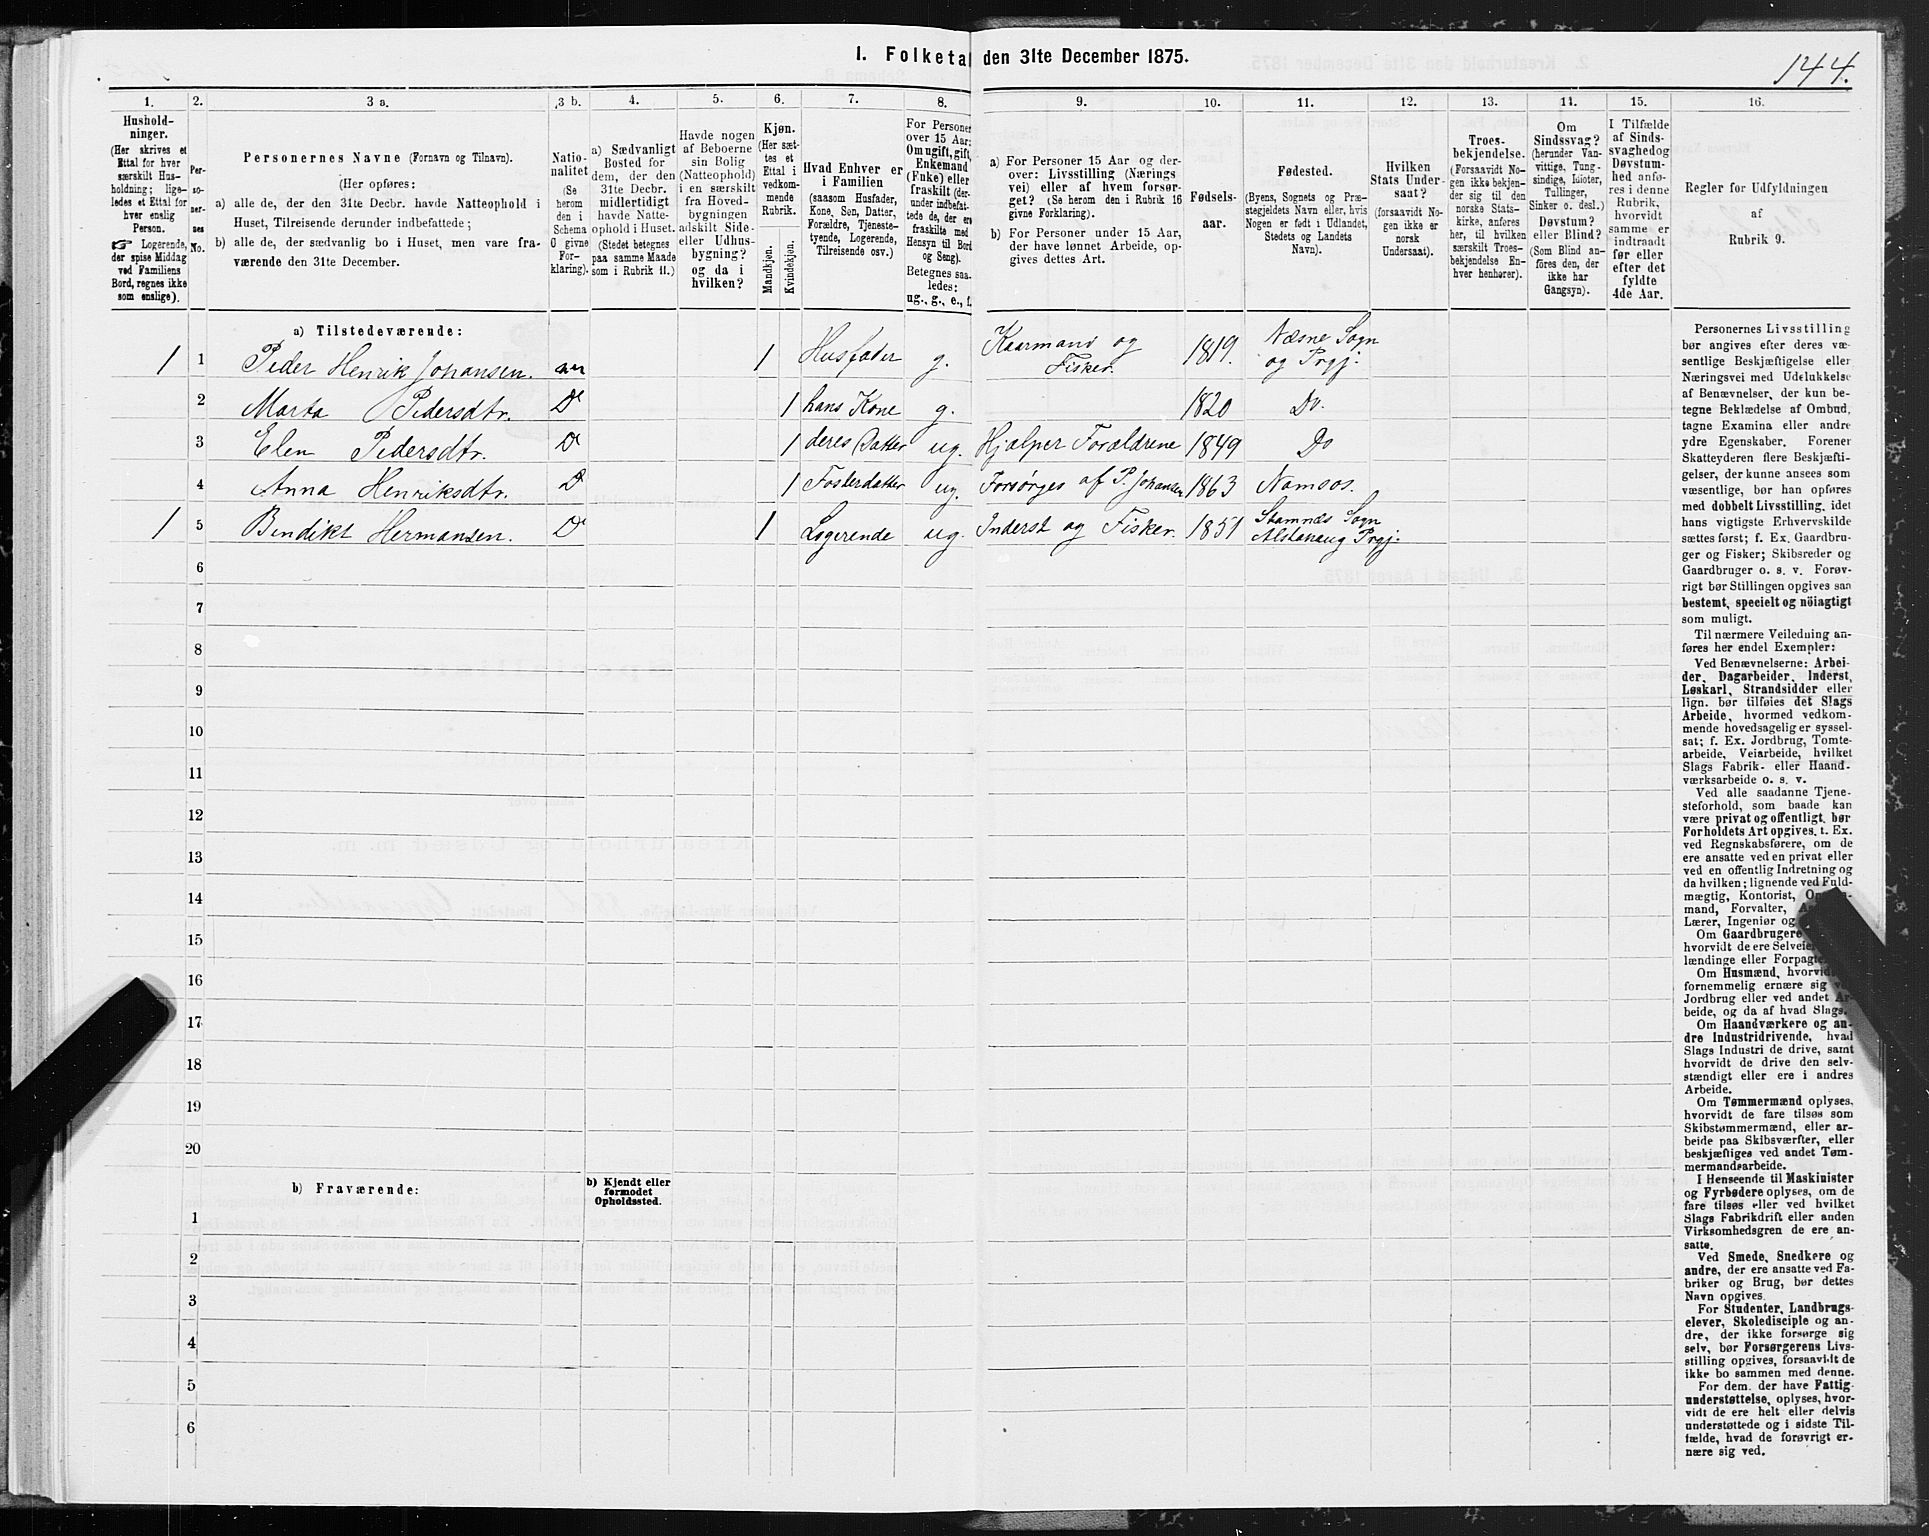 1. Folketal den 31te December 1875.
144.
1. 2. 3 a. 3 b. 4. 5. 6. 7. 8. 9. 10. 11. 12. 13. 14. 15. 16.
Hushold-
ninger.
(Her skrives et
Ettal for hver
særskilt Hus-
holdning; lige-
ledes et Ettal for
hver enslig
Person.
☞ Logerende,
der spise Middag
ved Familiens
Bord, regnes ikke
som enslige).
Per-
so-
ner-
nes
No.
Personernes Navne (Fornavn og Tilnavn).
(Her opføres:
a) alle de, der den 31te Decbr. havde Natteophold i
Huset, Tilreisende derunder indbefattede;
b) alle de, der sædvanlig bo i Huset, men vare fra-
værende den 31te December.
Natio-
nalitet
(Se
herom
den i
Schema
O givne
For-
klaring).
a) Sædvanligt
Bosted for
dem, der den
31te Decbr.
midlertidigt
havde Natte-
ophold i Huset.
(Stedet betegnes
paa samme Maade
som i Rubrik 11.)
Havde nogen
af Beboerne
sin Bolig
(Natteophold)
i en særskilt
fra Hoved-
bygningen
adskilt Side-
eller Udhus-
bygning?
og da i
hvilken?
Kjøn.
(Her sæt-
tes et
Ettal i
vedkom-
mende
Rubrik.
Mandkjøn.
Kvindekjøn.
Hvad Enhver er
i Familien
(saasom Husfader,
Kone, Søn, Datter,
Forældre, Tjeneste-
tyende, Logerende,
Tilreisende osv.)
For Personer
over 15 Aar:
Om ugift, gift,
Enkemand
(Enke) eller
fraskilt (der-
under indbefat-
tede de, der ere
fraskilte med
Hensyn til Bord
og Seng).
Betegnes saa-
ledes:
ug., g., e., f.
a) For Personer 15 Aar og der-
over: Livsstilling (Nærings
vei) eller af hvem forsør-
get? (Se herom den i Rubrik 16
givne Forklaring).
b) For Personer under 15 Aar,
der have lønnet Arbeide, op-
gives dettes Art.
Fødsels-
aar.
Fødested.
(Byens, Sognets og Præ-
stegjeldets Navn eller, hvis
Nogen er født i Udlandet,
Stedets og Landets
Navn).
Hvilken
Stats Under-
saat?
(forsaavidt No-
gen ikke er
norsk
Undersaat).
Troes-
bekjendelse.
(Forsaavidt No-
gen ikke bekjen-
der sig til den
norske Stats-
kirke, anføres
her, til hvilken
særskilt Troes-
bekjendelse En-
hver henhører).
Om
Sindssvag?
(herunder Van-
vittige, Tung-
sindige, Idioter,
Tullinger,
Sinker o. desl.)
Døvstum?
eller Blind?
(Som Blind an-
føres den, der
ikke har
Gangsyn).
I Tilfælde
af Sinds-
svaghed og
Døvstum-
hed anfø-
res i denne
Rubrik,
hvorvidt
samme er
indtraadt
før eller
efter det
fyldte
4de Aar.
Regler for Udfyldningen
af
Rubrik 9.
a) Tilstedeværende:
1 1 Peder Henrik Johansen. nn 1 Husfader g. Kaarmand og Fisker. 1819. Næsne Sogn og Prgj.
2 Marta Pedersdtr. Do 1 hans Kone g. 1820 Do.
3 Elen Pedersdtr. Do 1 deres Datter ug. Hjælper Forældrene 1849 Do
4 Anna Henriksdtr. Do 1 Fosterdatter ug. Forsørges af P. Johansen 1863 Namsos.
1 5 Bendikt Hermansen. Do 1 Logerende ug. Inderst og Fisker. 1851 Stamnes Sogn Alstahaug Prgj.
6
7
8
9
10
11
12
13
14
15
16
17
18
19
20
b) Fraværende:
b) Kjendt eller
formodet
Opholdssted.
1
2
3
4
5
6
Personernes Livsstilling
bør angives efter deres væ-
sentlige Beskjæftigelse eller
Næringsvei med Udelukkelse
af Benævnelser, der kun be-
tegne Beklædelse af Ombud,
tagne Examina eller andre
ydre Egenskaber. Forener
Skatteyderen flere Beskjæfti-
gelser, der kunne ansees som
væsentlige, bør han opføres
med dobbelt Livsstilling, idet
hans vigtigste Erhvervskilde
sættes først; f. Ex. Gaardbru-
ger og Fisker; Skibsreder og
Gaardbruger o. s. v. Forøv-
rigt bør Stillingen opgives saa
bestemt, specielt og nöiagtigt
som muligt.
Til nærmere Veiledning an-
føres her endel Exempler:
Ved Benævnelserne: Arbei-
der, Dagarbeider, Inderst,
Løskarl, Strandsidder eller
lign. bør tilføies det Slags
Arbeide, hvormed vedkom-
mende hovedsagelig er syssel-
sat; f. Ex. Jordbrug, Tomte-
arbeide, Veiarbeide, hvilket
Slags Fabrik- eller Haand-
værksarbeide o. s. v.
Ved alle saadanne Tjene-
steforhold, som baade kan
være privat og offentligt, bør
Forholdets Art opgives. t. Ex.
ved Regnskabsførere, om de
ere ansatte ved en privat eller
ved en offentlig Indretning og
da hvilken; lignende ved Fuld-
mægtig, Kontorist,
mand, Forvalter,
Lærer, Ingeniør og
Om Gaardbrugere
hvorvidt de ere
lændinge eller
Om Husmænd,
fornemmelig ernære sig
Jordbrug eller ved andet Ar-
beide, og da af hvad Slags.
Om Haandværkere og an-
dre Industridrivende, hvad
Slags Industri de drive, samt
hvorvidt de drive den selv-
stændigt eller ere i andres
Arbeide.
Om Tømmermænd oplyses,
hvorvidt de fare tilsøs som
Skibstømmermænd, eller ar-
beide paa Skibsværfter, eller
beskjæftiges ved andet Tøm-
mermandsarbeide.
I Henseende til Maskinister
og Fyrbødere oplyses, om de
fare tilsøs eller ved hvilket
Slags Fabrikdrift eller anden
Virksomhedsgren de ere an-
satte.
Ved Smede, Snedkere og
andre, der ere ansatte ved Fa-
briker og Brug, bør dettes
Navn opgives.
For Studenter, Landbrugs-
elever, Skoledisciple og an-
dre, der ikke forsørge sig
selv, bør Forsørgerens Livs-
stilling opgives, forsaavidt de
ikke bo sammen med denne.
For dem, der have Fattig-
understøttelse, oplyses, hvor-
vidt de ere helt eller delvis
understøttede og i sidste Til-
fælde, hvad de forøvrigt er-
nære sig ved.